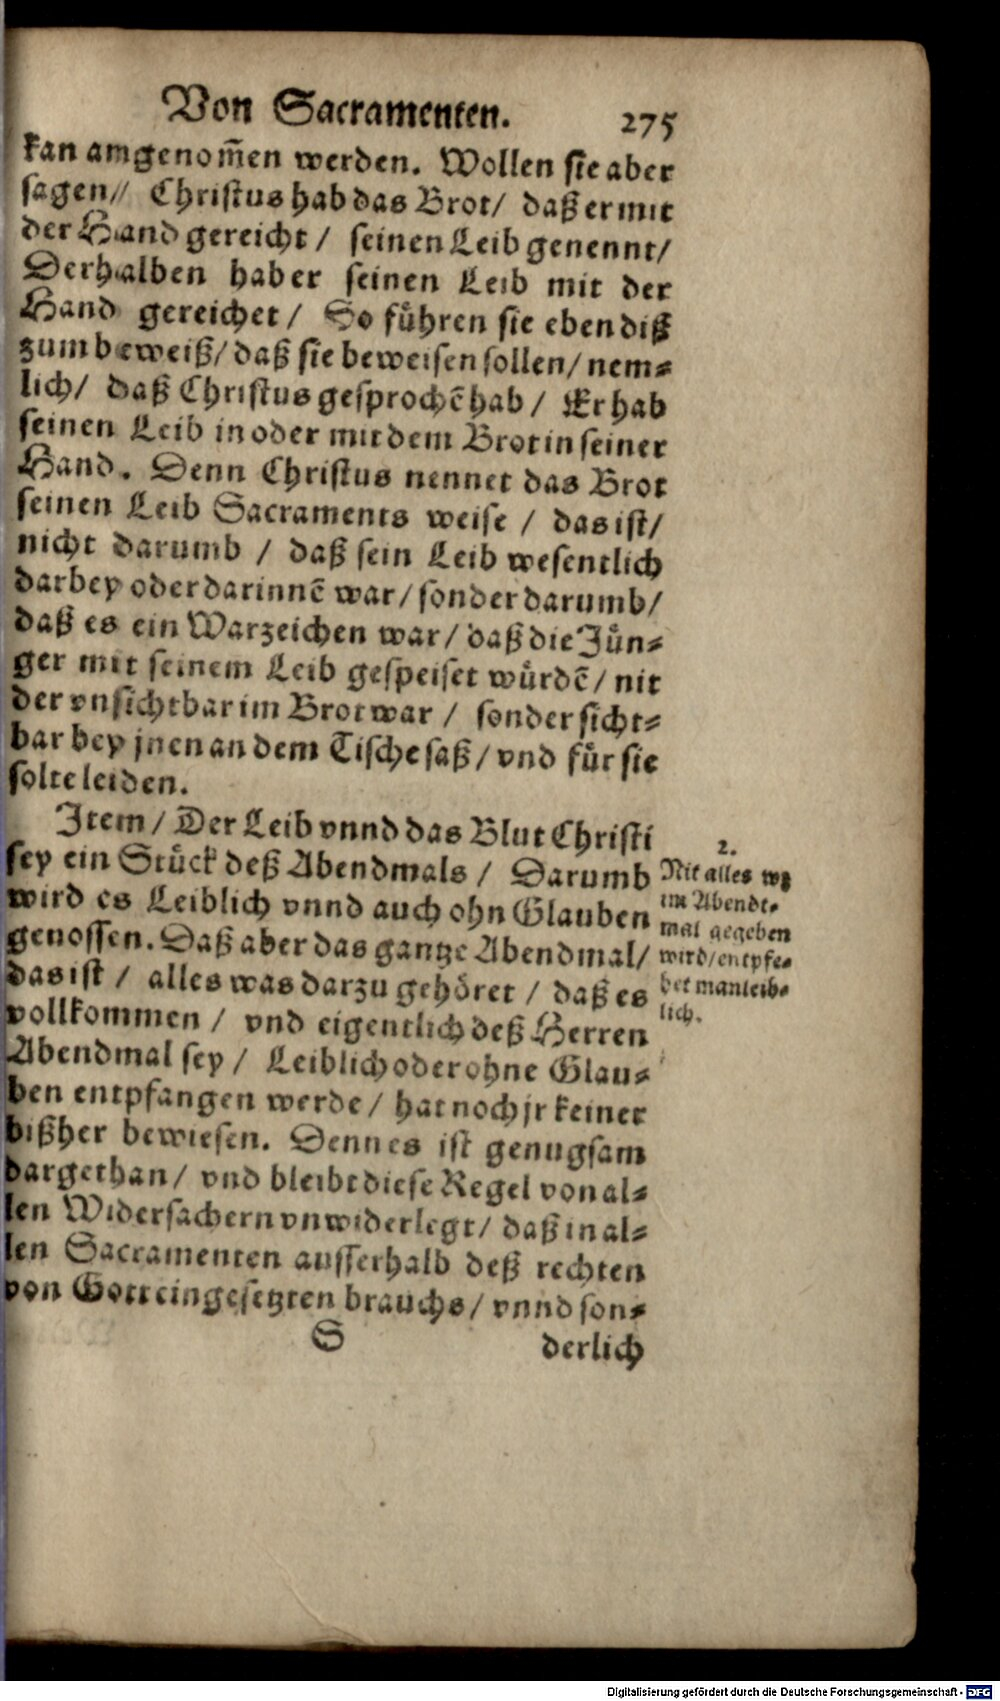 Von Sacramenten. 275
kan angenom̃en werden. Wollen sie aber
sagen// Christus hab das Brot/ daß er mit
der Hand gereicht / seinen Leib genennt/
Derhalben hab er seinen Leib mit der
Hand gereichet / So fuͤhren sie eben diß
zum beweiß/ daß sie beweisen sollen/ nem⸗
lich/ daß Christus gesprochē hab / Er hab
seinen Leib in oder mit dem Brot in seiner
Hand. Denn Christus nennet das Brot
seinen Leib Sacraments weise / das ist/
nicht darumb / daß sein Leib wesentlich
darbey oder darinnē war/ sonder darumb/
daß es ein Warzeichen war/ daß die Juͤn⸗
ger mit seinem Leib gespeiset wuͤrdē/ nit
der vnsichtbar im Brot war / sonder sicht⸗
bar bey jnen an dem Tische saß/ vnd fuͤr sie
solte leiden.
Item/ Der Leib vnnd das Blut Christi
sey ein Stuͤck deß Abendmals / Darumb
wird es Leiblich vnnd auch ohn Glauben
genossen. Daß aber das gantze Abendmal/
das ist / alles was darzu gehoͤret / daß es
vollkommen / vnd eigentlich deß Herren
Abendmal sey / Leiblich oder ohne Glau⸗
ben entpfangen werde / hat noch jr keiner
bißher bewiesen. Denn es ist genugsam
dargethan/ vnd bleibt diese Regel von al⸗
len Widersachern vnwiderlegt/ daß in al⸗
len Sacramenten ausserhalb deß rechten
von Gott eingesetzten brauchs/ vnnd son⸗
S derlich
2.
Nit alles wz
im Abendt⸗
mal gegeben
wird/ entpfe⸗
het man leib⸗
lich.
Digitalisierung gefördert durch die Deutsche Forschungsgemeinschaft - DFG